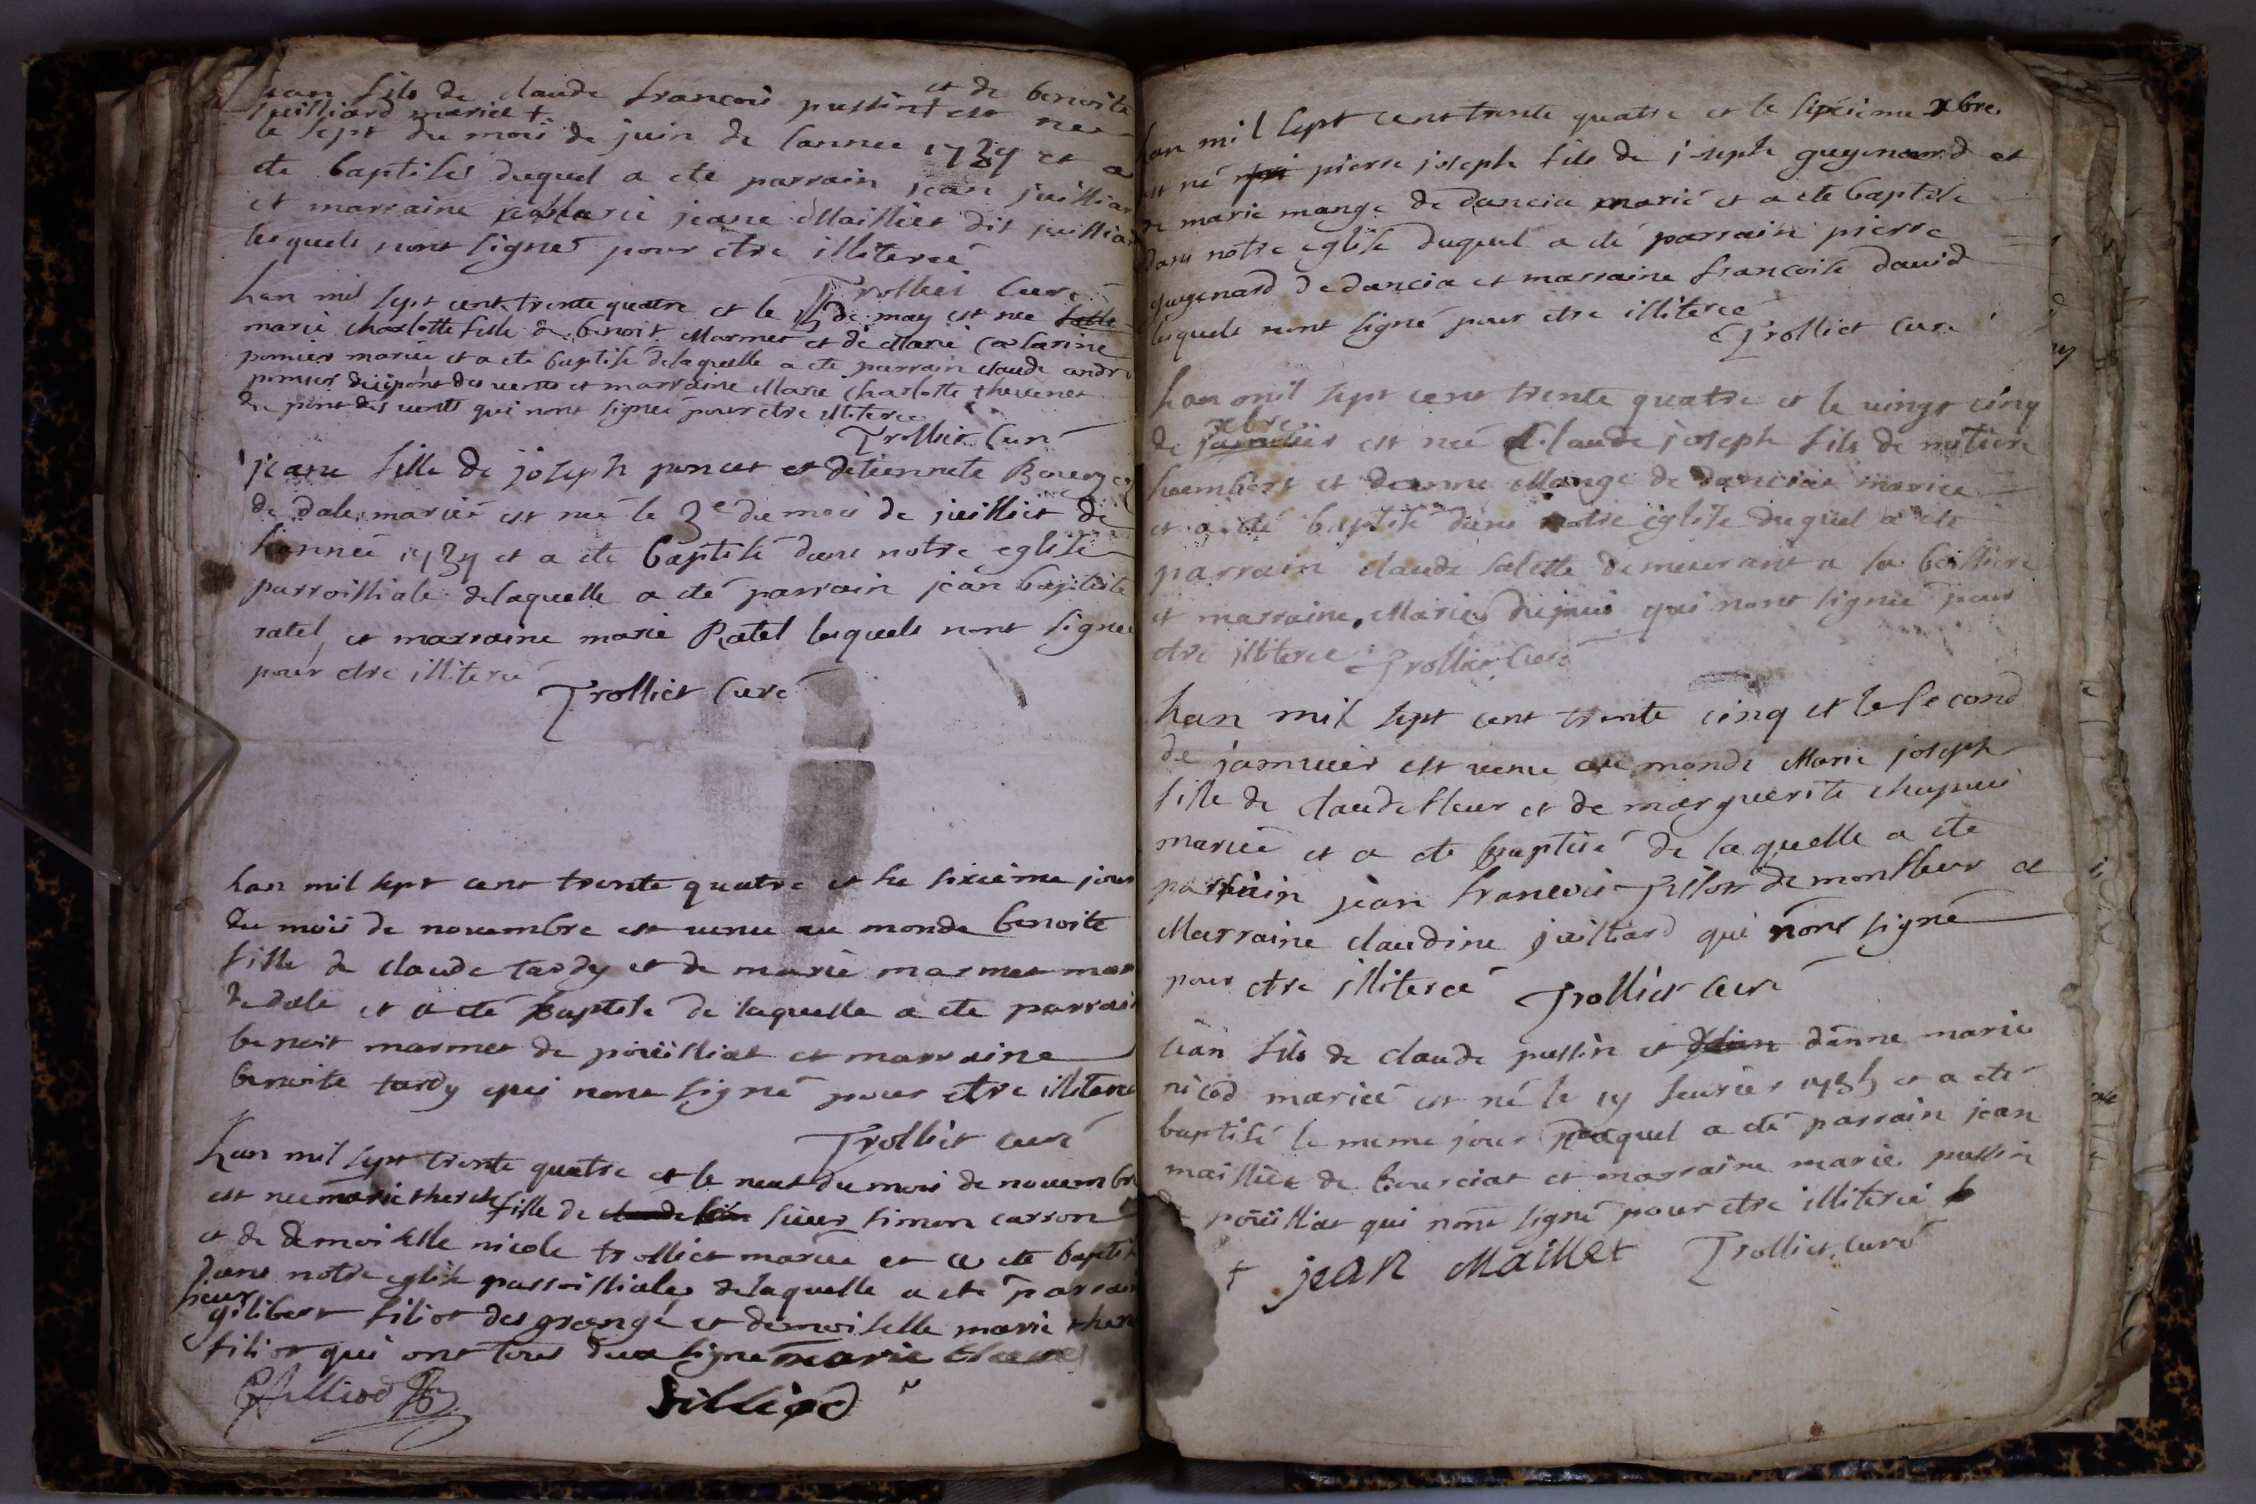 jean fils de claude francois pussin + est né
et de benoite
juilliard mariee +
le sept du mois de juin de lannee 1734 et a
ete baptisés duquel a ete parrain jean juilliar
et marraine marie jeane Maillies dit juilliar
lesquels nont signes pour etre illiteré
Trolliet Curé
Lan mil sept cent trente quatre et le de may est nee
marie charlotte fille de benoit Marmet et de Marie Catarine
pomier mariée et a ete baptise delaquelle a ete parrain claude andr
pomier du pont des vents et marraine Marie Charlotte thevenet
du pont des vents qui nont signee pour etre illiteree
Trolliet Curé
jeane fille de joseph poncet et detiennete
de dale mariée est neé le 3e du mois de juilliet de
Lannee 1734 et a ete baptisé dans notre eglise
parroissiale delaquelle a eté parrain jean baptiste
ratel et marraine marie Ratel lesquels nont signee
pour etre illiteré
Trolliet Curé
Lan mil sept cent trente quatre et le sixieme jour
du mois de novembre est venu au monde benoite
fille de claude tardy et de marie marmet mar
de dale et a eté baptisé de laquelle a ete parrai
benoit marmet de poüilliat et marraine
benoite tardy qui nont signé pour etre illiteré
Trolliet curé
Lan mil sept trente quatre et le neuf du mois de novembr
est nee marie therese fille de sieur simon carron
et de demoiselle nicole trolliet mariee et a ete bapti
dans notre eglise parroissiale delaquelle a ete parrai
sieur
gilibert filiot des grange et demoiselle marie ther
filiot qui ont tous deux signé marie
filliod
filliod
Lan mil sept cent trente quatre et le sixieme xbre
est né pierre joseph fils de joseph guygenard et
de marie mange de dancia marié et a ete baptise
dans notre eglise duquel a eté parrain pierre
guygenard de dancia et marraine francoise david
lesquels nont signé pour etre illiteré
Trolliet Curé
Lan mil sept cent trente quatre et le vingt cinq
xbre
de janvier est neé Claude joseph fils de
humbert et deanne Mange de danciat mariee
et a eté baptisé dans notre eglise duquel a ete
parrain claude salette demeurant a la
et marraine Marie dupuis qui nont signée pour
etre illiteree Trolliet Curé
Lan mil sept cent trente cinq et le second
de janvier est venu au monde Marie joseph
fille de claude fleur et de marguerite chapuis
mariée et a eté baptisé de laquelle a ete
parrain jean francois de monfleur et
Marraine claudine juilliard qui nont signé
pour etre illiteré Trolliet curé
jean fils de claude pussin et danne marie
nicod marieé est né le 14 fevrier 1735 et a eté
baptisé le meme jour duquel a eté parrain jean
maillet de bourciat et marraine marie pussin
de poüilliat qui nont signé pour etre illiteré
+ jean Maillet Trolliet curé